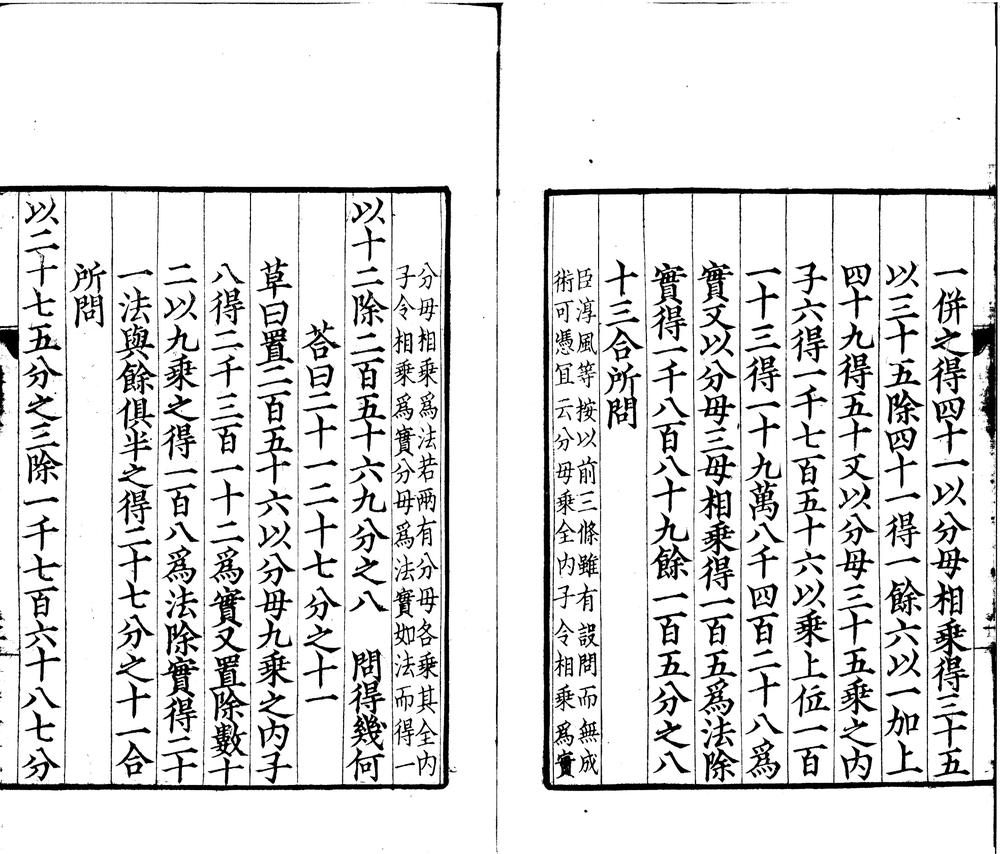 一併之得四十一以分母相乘得三十五
以三十五除四十一得一餘六以一加上
四十九得五十又以分母三十五乘之内
子六得一千七百五十六以乘上位一百
一十三得一十九萬八千四百二十八爲
實又以分母三母相乘得一百五爲法除
實得一千八百八十九餘一百五分之八
十三合所問
臣淳風等按以前三條雖有設問而無成
術可憑冝云分母乘全内子令相乘爲實
分母相乘爲法若兩有分母各乘其全内
子令相乘爲實分母爲法實如法而得一
以十二除二百五十六九分之八　問得幾何
荅曰二十一二十七分之十一
草曰置二百五十六以分母九乘之内子
八得二千三百一十二爲實又置除數十
二以九乘之得一百八爲法除實得二十
一法與餘俱半之得二十七分之十一合
所問
以二十七五分之三除一千七百六十八七分